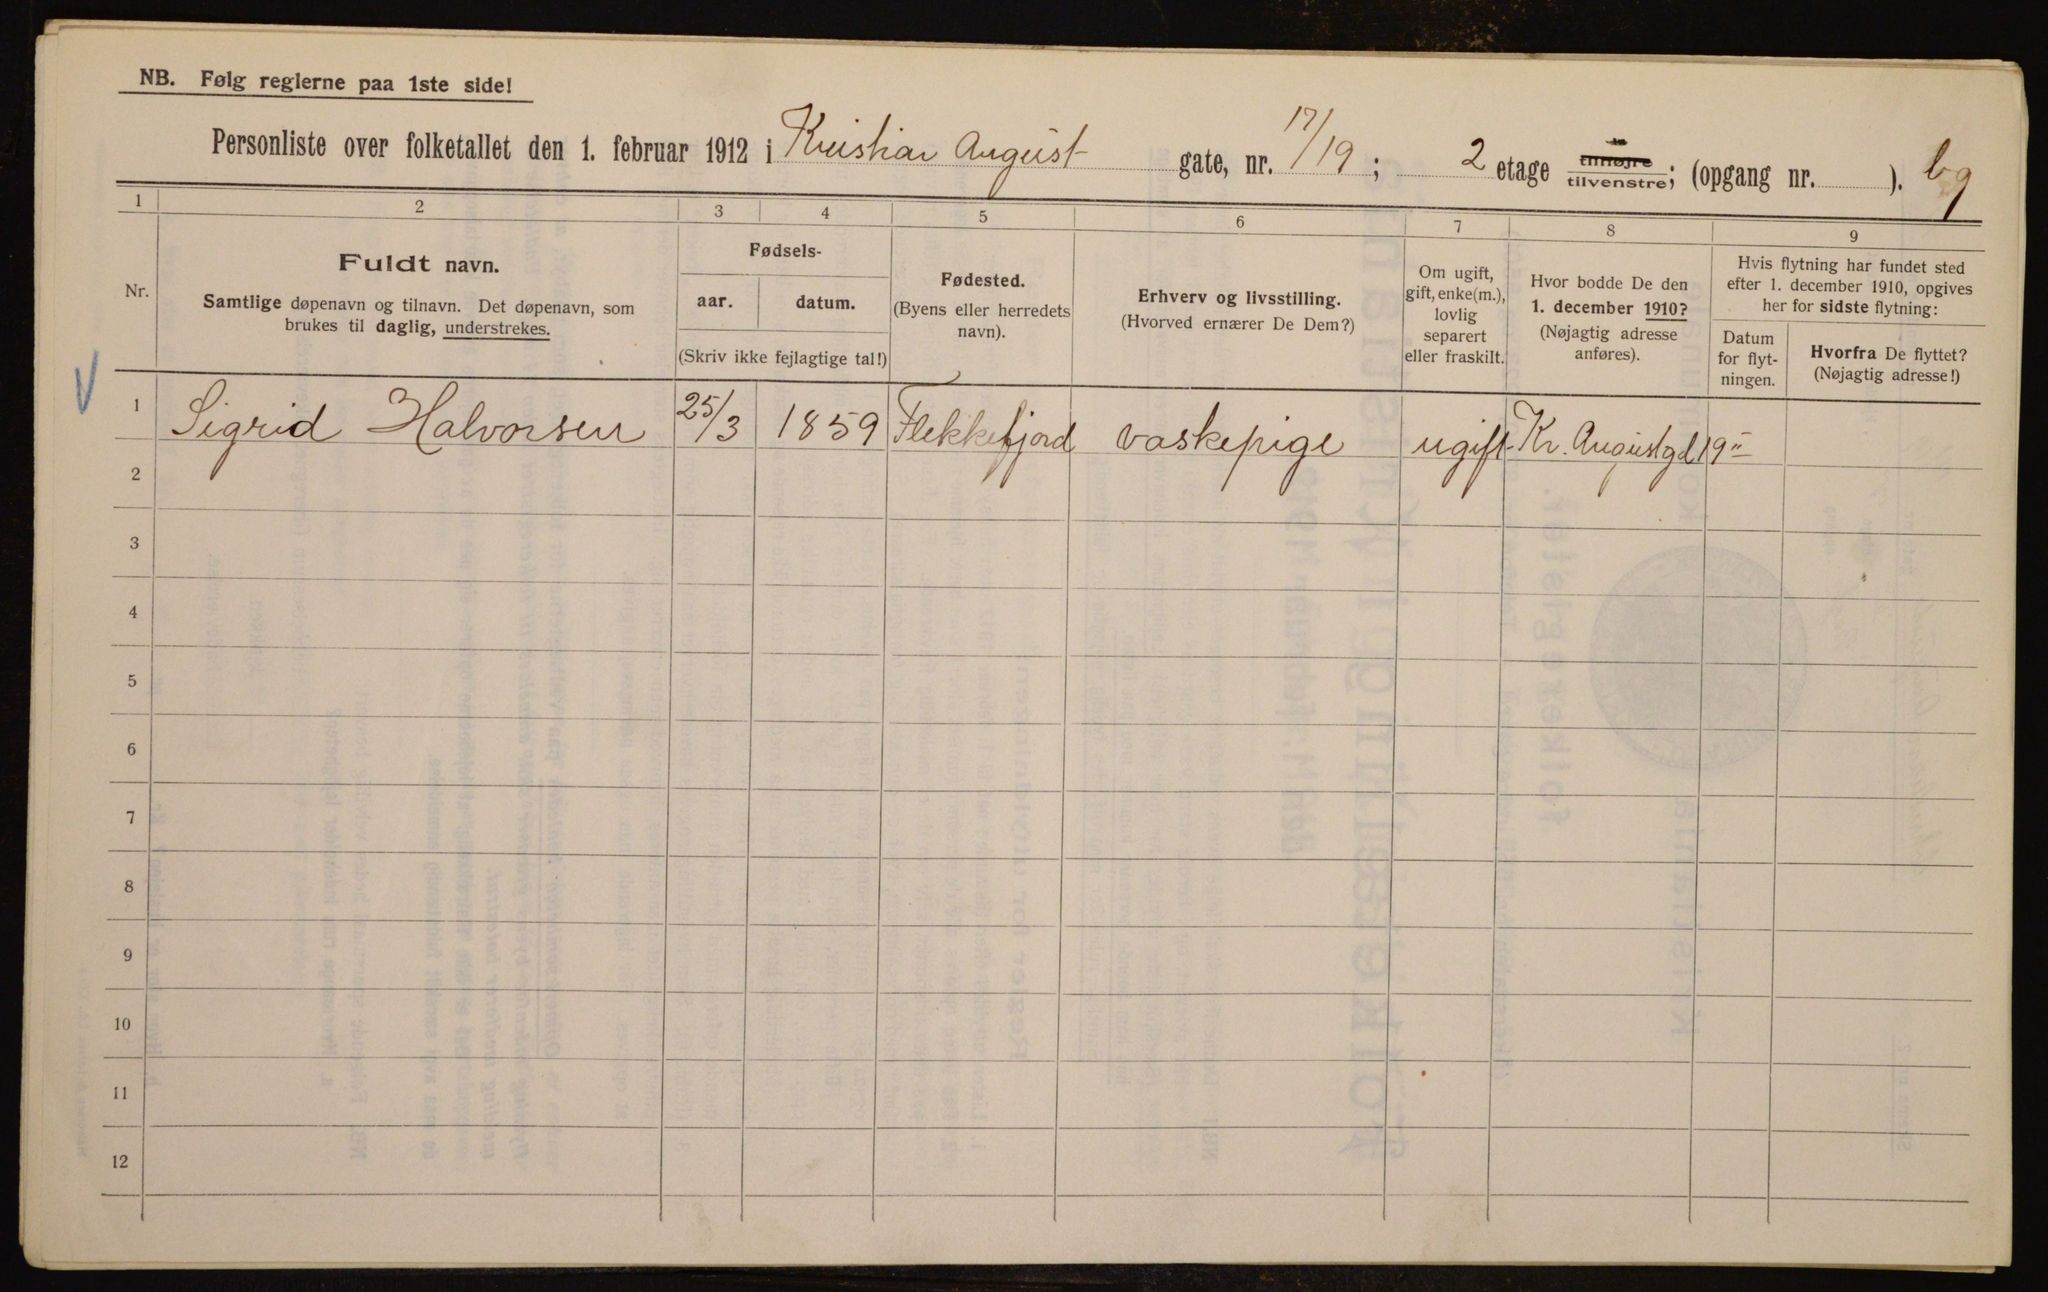 NB. Følg reglerne paa 1ste side!
Personliste over folketallet den 1. februar 1912 i Kristian August gate, nr. 17/19; 2 etage tilhøjre tilvenstre; (opgang nr. ). bg
1 2 3 4 5 6 7 8 9
Nr.
Fuldt navn.
Samtlige døpenavn og tilnavn. Det døpenavn, som
brukes til daglig, understrekes.
Fødsels-
aar. datum.
(Skriv ikke fejlagtige tal!)
Fødested.
(Byens eller herredets
navn).
Erhverv og livsstilling.
(Hvorved ernærer De Dem?)
Om ugift,
gift, enke(m.),
lovlig
separert
eller fraskilt.
Hvor bodde De den
1. december 1910?
(Nøjagtig adresse
anføres).
Hvis flytning har fundet sted
efter 1. december 1910, opgives
her for sidste flytning:
Datum
for flyt-
ningen.
Hvorfra De flyttet?
(Nøjagtig adresse!)
1 Sigrid Halvorsen 25/3 1859 Flekkefjord vaskepige ugift Kr. Augustgd 19
2
3
4
5
6
7
8
9
10
11
12